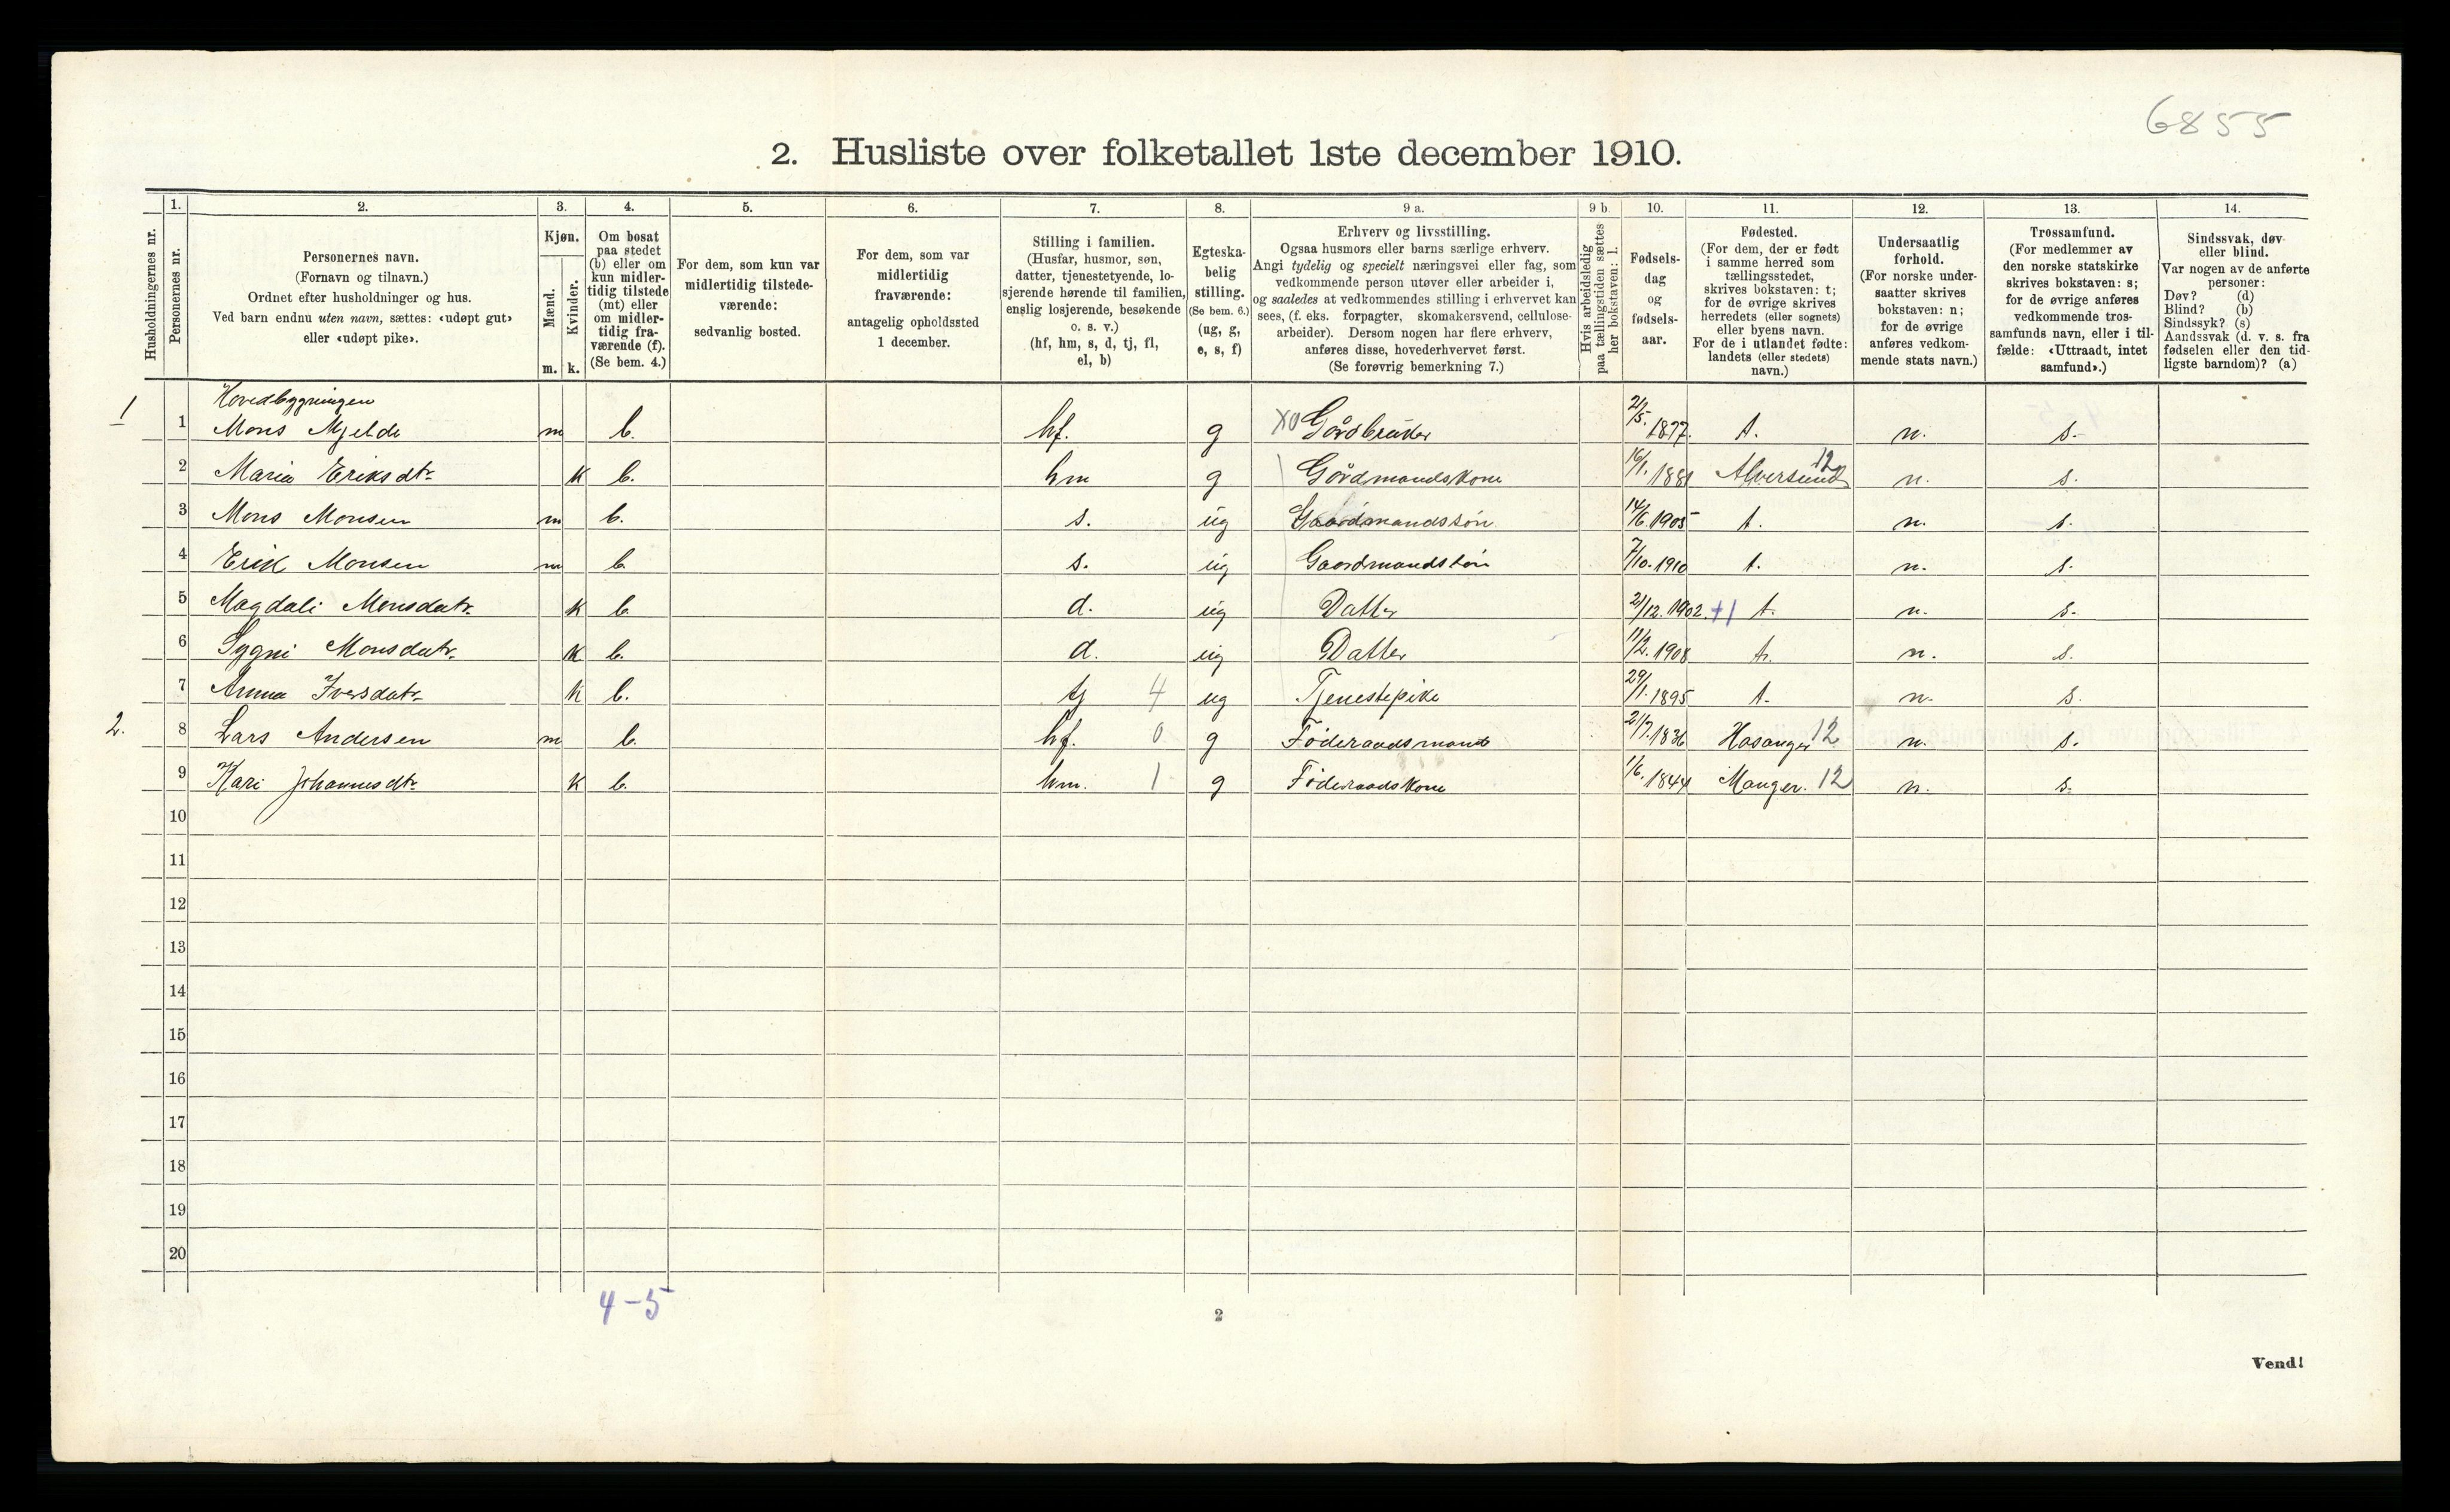 6855
2. Husliste over folketallet 1ste december 1910.
Husholdningernes nr.
1.
Personernes nr.
2.
Personernes navn.
(Fornavn og tilnavn.)
Ordnet efter husholdninger og hus.
Ved barn endnu uten navn, sættes: «udøpt gut»
eller «udøpt pike».
3.
Kjøn.
Mænd.
m.
Kvinder.
k.
4.
Om bosat
paa stedet
(b) eller om
kun midler-
tidig tilstede
(mt) eller
om midler-
tidig fra-
værende (f).
(Se bem. 4.)
5.
For dem, som kun var
midlertidig tilstede-
værende:
sedvanlig bosted.
6.
For dem, som var
midlertidig
fraværende:
antagelig opholdssted
1 december.
7.
Stilling i familien.
(Husfar, husmor, søn,
datter, tjenestetyende, lo-
sjerende hørende til familien,
enslig losjerende, besøkende
o. s. v.)
(hf, hm, s, d, tj, fl,
el, b)
8.
Egteska-
belig
stilling.
(Se bem. 6.)
(ug, g,
e, s, f)
9 a.
Erhverv og livsstilling.
Ogsaa husmors eller barns særlige erhverv.
Angi tydelig og specielt næringsvei eller fag, som
vedkommende person utøver eller arbeider i,
og saaledes at vedkommendes stilling i erhvervet kan
sees, (f. eks. forpagter, skomakersvend, cellulose-
arbeider). Dersom nogen har flere erhverv,
anføres disse, hovederhvervet først.
(Se forøvrig bemerkning 7.)
9 b
Hvis arbeidsledig
paa tællingstiden sættes
her bokstaven: l.
10.
Fødsels-
dag
og
fødsels-
aar.
11.
Fødested.
(For dem, der er født
i samme herred som
tællingsstedet,
skrives bokstaven: t;
for de øvrige skrives
herredets (eller sognets)
eller byens navn.
For de i utlandet fødte:
landets (eller stedets)
navn.)
12.
Undersaatlig
forhold.
(For norske under-
saatter skrives
bokstaven: n;
for de øvrige
anføres vedkom-
mende stats navn.)
13.
Trossamfund.
(For medlemmer av
den norske statskirke
skrives bokstaven: s;
for de øvrige anføres
vedkommende tros-
samfunds navn, eller i til-
fælde: «Uttraadt, intet
samfund».)
14.
Sindssvak, døv
eller blind.
Var nogen av de anførte
personer:
Døv? (d)
Blind? (b)
Sindssyk? (s)
Aandssvak (d. v. s. fra
fødselen eller den tid-
ligste barndom)? (a)
Hovedbygningen
1 1 Mons Mjelde m b. hf. g X0 Gårdbruker 2/5. 1877. t. n. s.
2 Maria Eriksdtr k b. hm g Gårdmandskone 16/1. 1881 Alversund 12 n. s.
3 Mons Monsen m b. s. ug Gaardmandssøn 14/6 1905 t. n. s.
4 Erik Monsen m b s. ug Gaardmandssøn 7/10. 1910 t. n. s.
5 Magdali Monsdatr. k b d. ug Datter 21/12. 1902 +1 t. n. s.
6 Sygni Monsdatr. k b. d. ug Datter 11/2. 1908 t. n. s.
7 Anna Iversdatr k b. tj 4 ug Tjenestepike 29/1. 1895 t. n. s.
2. 8 Lars Andersen m b. hf. 0 g Føderaadsmand 21/7. 1836 Hosanger 12 n. s.
9 Kari Johannesdtr k b. hm. 1 g Føderaadskone 1/6. 1844 Manger. 12 n. s.
10
11
12
13
14
15
16
17
18
19
20
4-5
2
Vend!